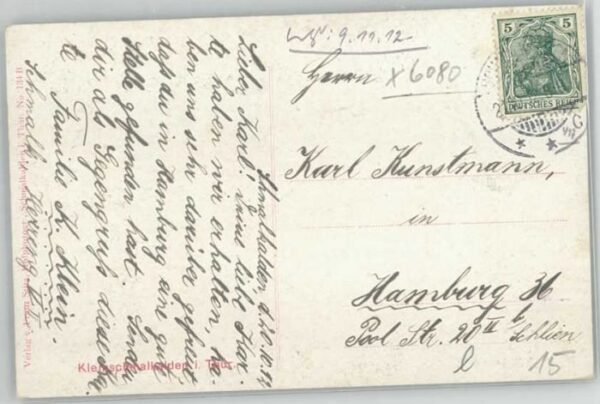 Schmalkalden d. 20.10.12
Lieber Karl! Deine liebe Kar-
te haben wir erhalten, ha-
ben uns sehr darüber gefreut
daß du in Hamburg ein gute
Stelle gefunden hast. Sende
dir als Gegengruß diese Kar-
te
Familie K. Klein.
Schmalk.
9.11.12
Herrn
X 6080
Karl Kunstmann,
in
Hamburg 36
Pool Str. 20 II b/
Schlien
15
5
5
DEUTSCHES REICH
Kleinschmalkalden i. Thür.